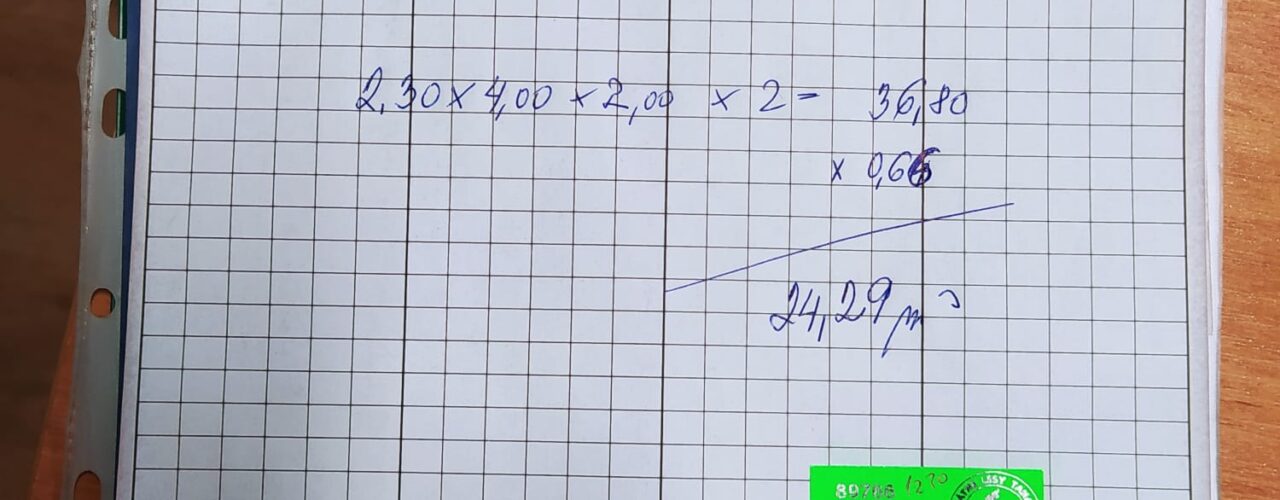 2,30 x 4,00 x 2,00 x 2 = 36,80
x 0,66
24,29 m³
89706 1270